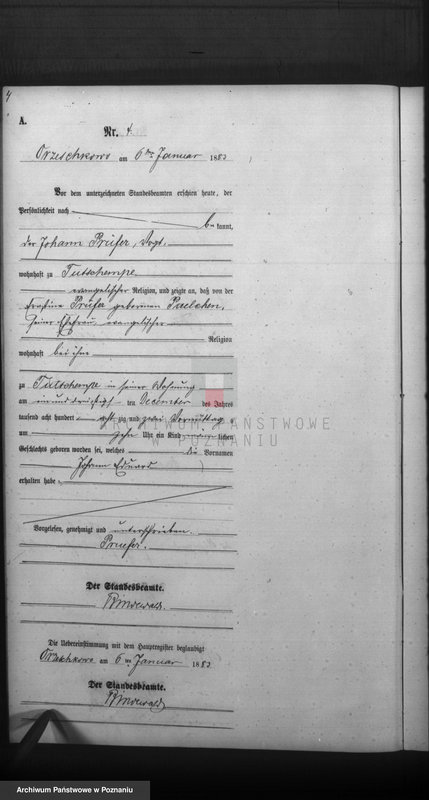 4
A.
Nr. 4.
Orzeschkowo am 6ten Januar 1883
Vor dem unterzeichneten Standesbeamten erschien heute, der
Persönlichkeit nach
be kannt,
der Johann Prüfer, Vogt,
wohnhaft zu Tutschempe
evangelischer Religion, und zeigte an, daß von der
Ernstine Prüfer geborenen Paelchen,
seiner Ehefrau, evangelischer
Religion
wohnhaft bei ihm
zu Tutschempe in seiner Wohnung
am ein und dreißigsten Dezember des Jahres
tausend acht hundert achtzig und zwei Vormittag
um zehn Uhr ein Kind männlichen
Geschlechts geboren worden sei, welches die Vornamen
Johann Eduard
erhalten habe
Vorgelesen, genehmigt und unterschrieben.
Pruefer.
Der Standesbeamte.
Die Uebereinstimmung mit dem Hauptregister beglaubigt
Orzeschkowo am 6ten Januar 1883
Der Standesbeamte.
ARCHIWUM PAŃSTWOWE
W POZNANIU
Archiwum Państwowe w Poznaniu